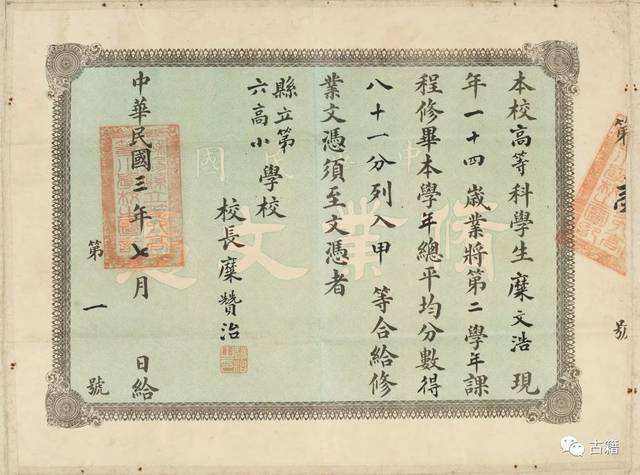 第 號
本校高等科學生糜文浩現
年一十四歲業將第二學年課
程修畢本學年總平均分數得
八十一分列入甲 等合給修
業文憑須至文憑者
縣立第
六高小
學校
校長糜贊治
中華民國三年七月 日給
第一號
修業文憑
古籍